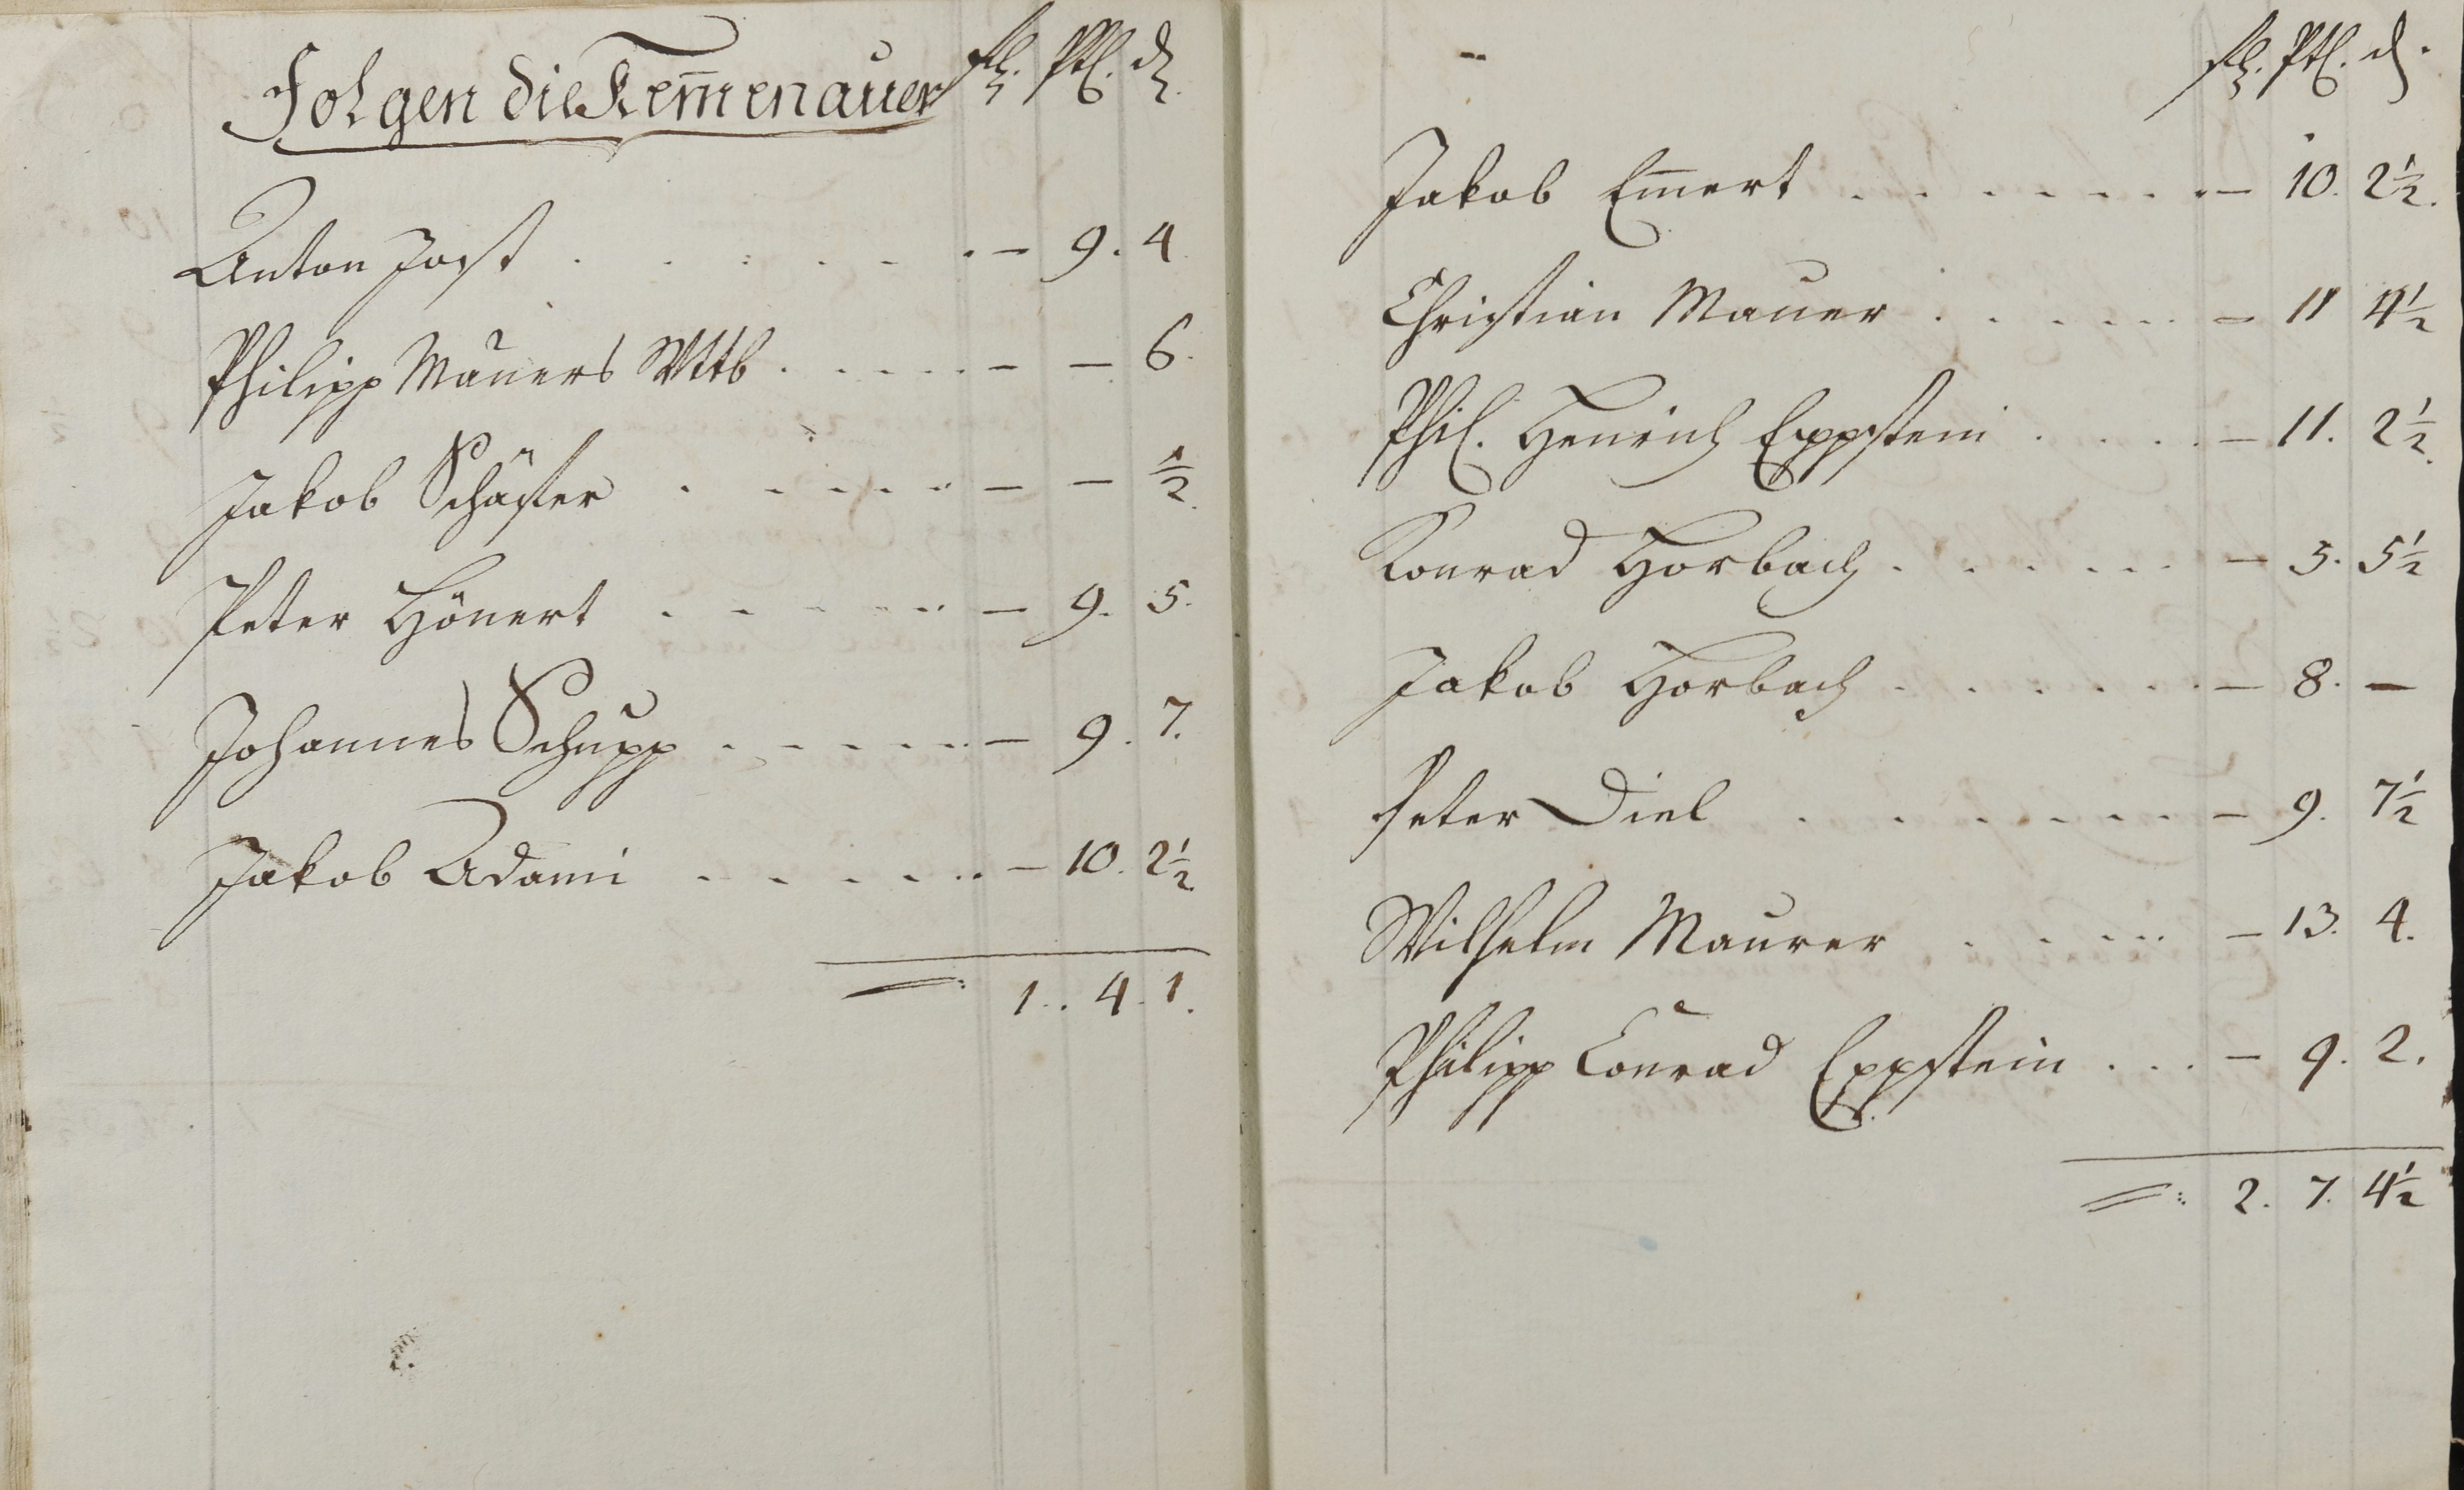 Folgen die Kem̅enauer fl. Ptz. d.
Anton Jost . . . . . . . — 9. 4
Philipp Mauers Wttb . . . . . — — 6.
Jakob Schäfer . . . . . . — — ½.
Peter Hönert . . . . . . — 9. 5.
Johannes Schupp . . . . . . — 9. 7.
Jakob Adami . . . . . . — 10. 2½.
=: 1.. 4. 1.
fl. Ptz. d.
Jakob Em̅ert . . . . . . — 10. 2½.
Christian Mauer . . . . . . — 11 4½
Phil. Henrich Eppstein . . . . — 11. 2½.
Konrad Horbach . . . . . . — 5. 5½
Jakob Horbach . . . . . . — 8. —
Peter Diel . . . . . . . — 9. 7½
Wilhelm Maurer . . . . . — 13. 4.
Philipp Conrad Eppstein . . . — 9. 2.
=: 2. 7. 4½